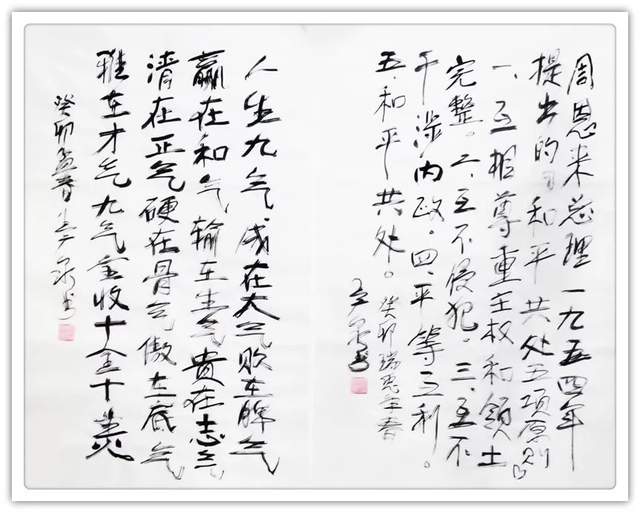 周恩来总理一九五四年
提出的和平共处五项原则
一、互相尊重主权和领土
完整。二、互不侵犯。三、互不
干涉内政。四、平等互利。
五、和平共处。
癸卯瑞惠年春
人生九气，成在大气败在脾气
赢在和气输在生气贵在志气
清在正气硬在骨气傲在底气
雅在才气九气全收十全十美
癸卯孟春